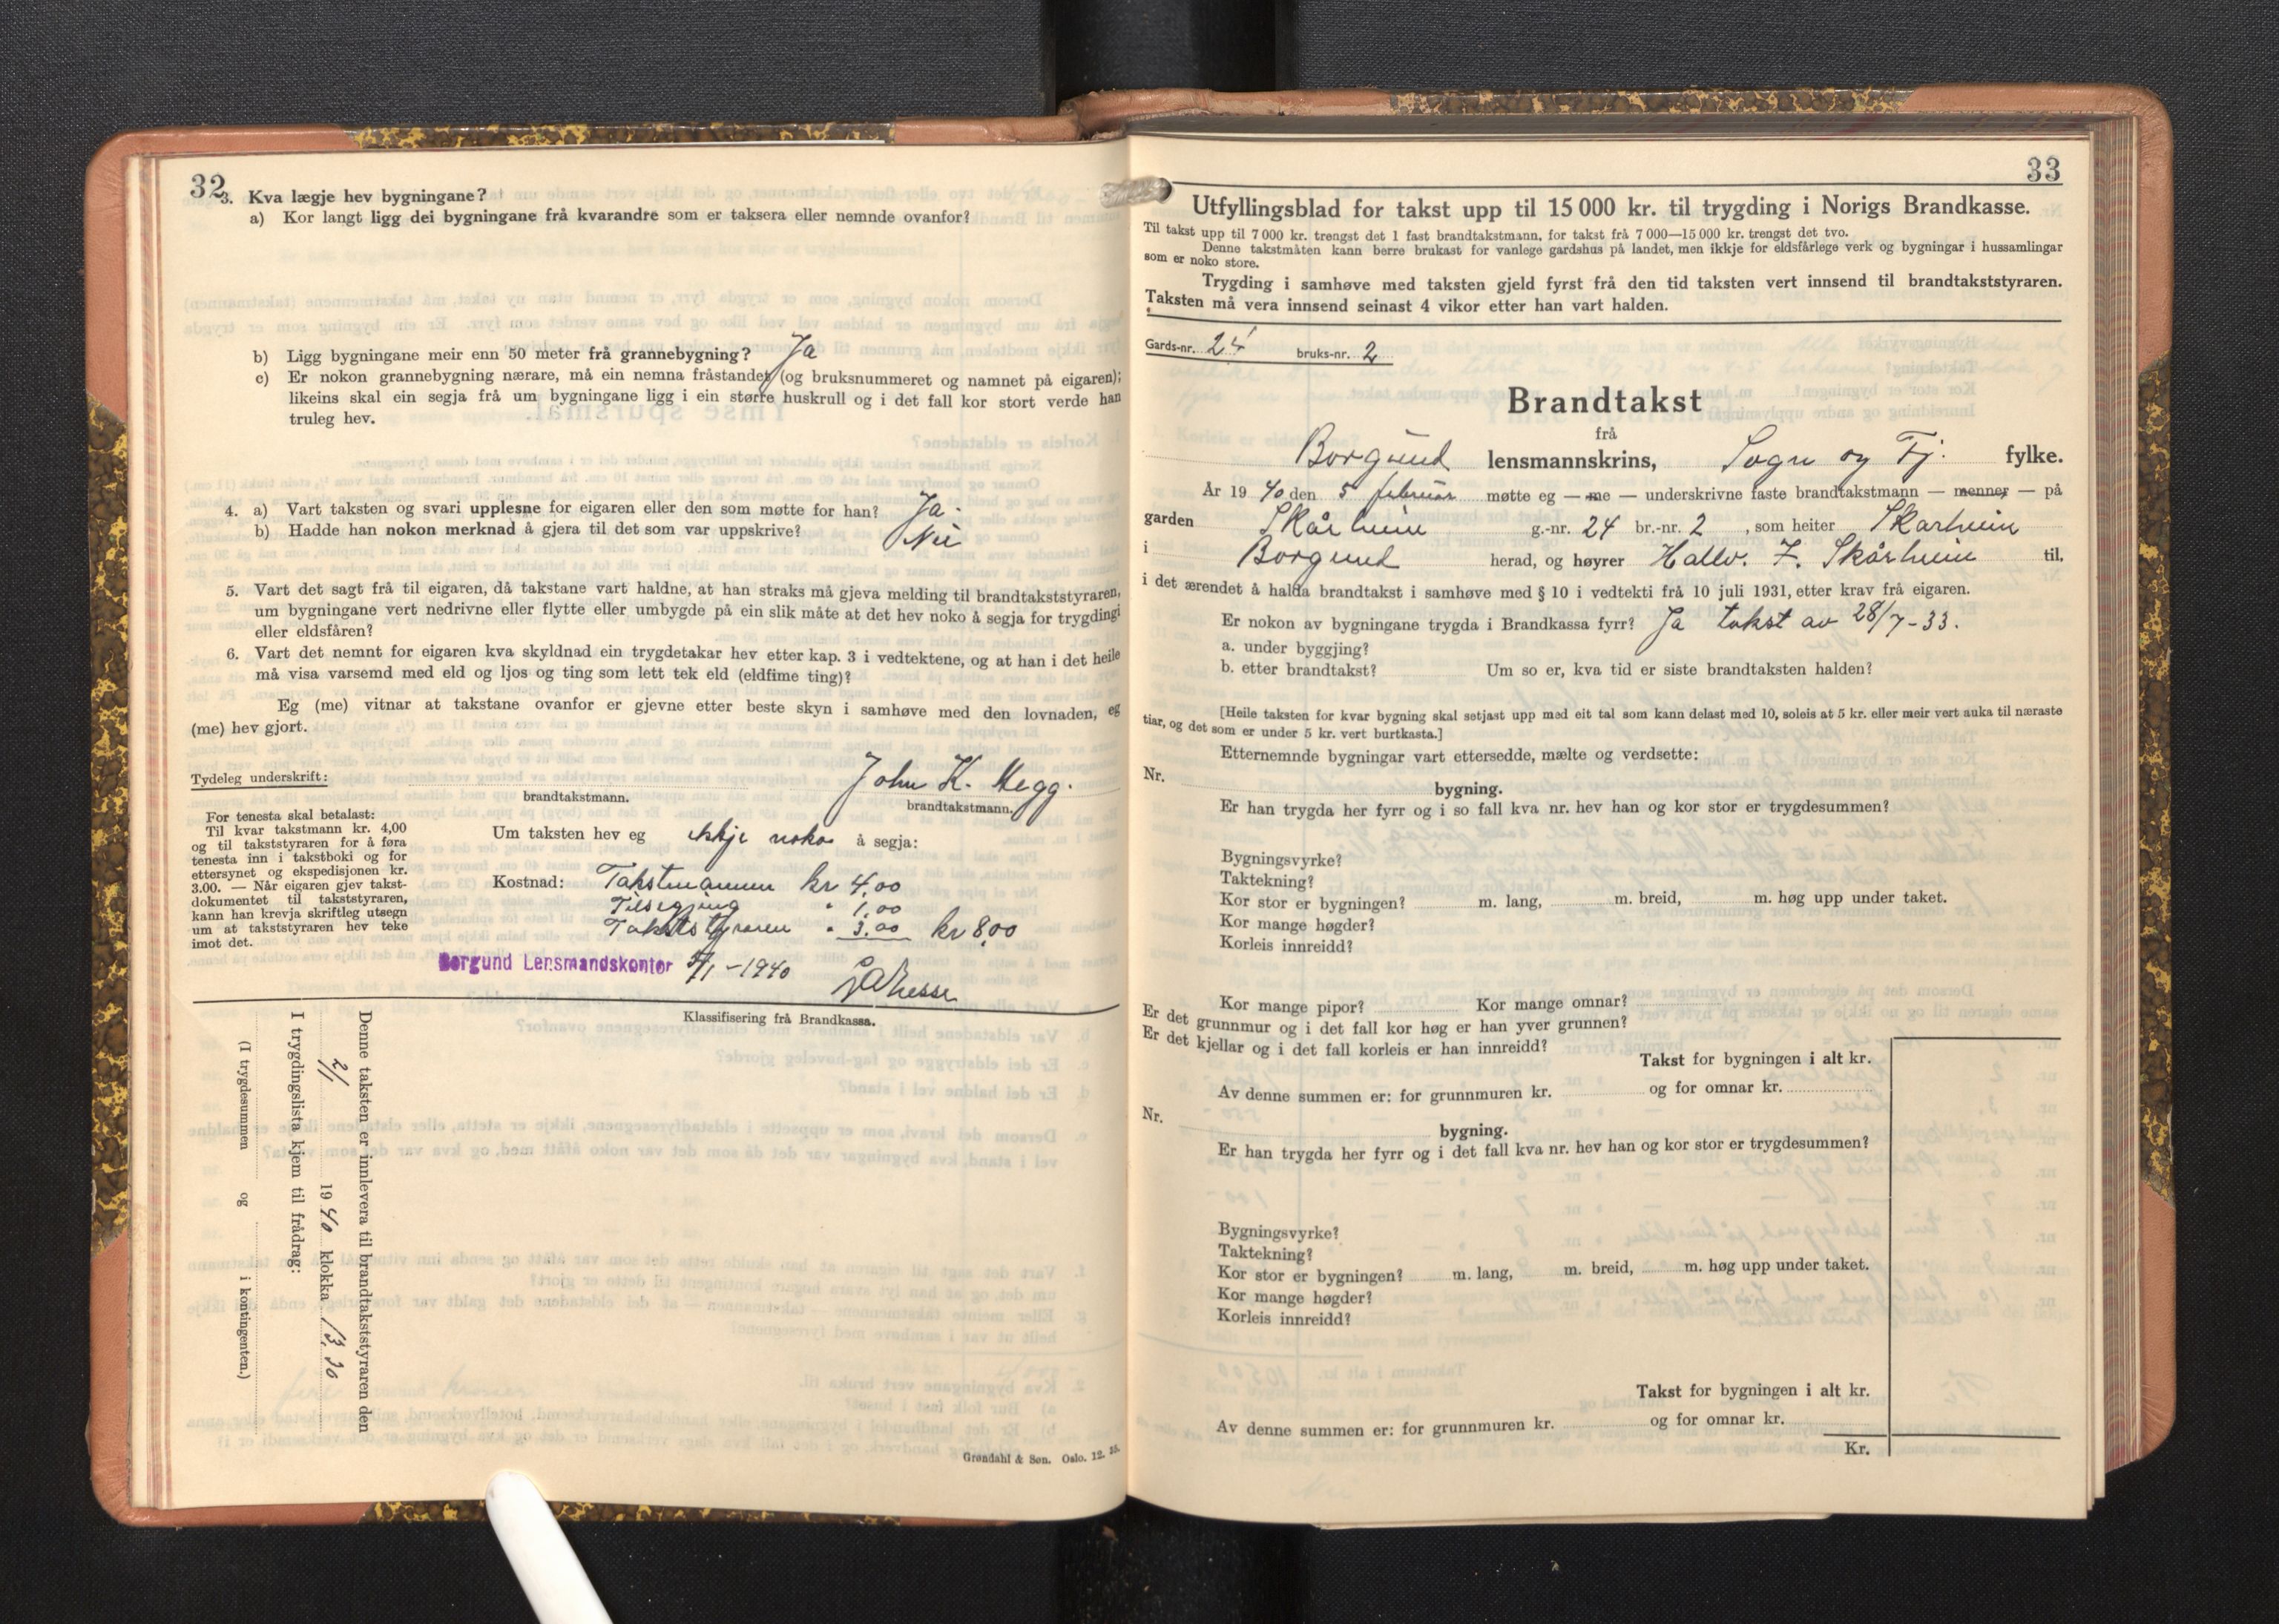 32
3. Kva lægje hev bygningane?
a) Kor langt ligg dei bygningane frå kvarandre som er taksera eller nemnde ovanfor?
b) Ligg bygningane meir enn 50 meter frå grannebygning? Ja
c) Er nokon grannebygning nærare, må ein nemna fråstandet (og bruksnummeret og namnet på eigaren);
likeins skal ein segja frå um bygningane ligg i ein større huskrull og i det fall kor stort verde han
truleg hev.
4. a) Vart taksten og svari upplesne for eigaren eller den som møtte for han? Ja.
b) Hadde han nokon merknad å gjera til det som var uppskrive? Nei
5. Vart det sagt frå til eigaren, då takstane vart haldne, at han straks må gjeva melding til brandtakststyraren,
um bygningane vert nedrivne eller flytte eller umbygde på ein slik måte at det hev noko å segja for trygdingi
eller eldsfåren?
6. Vart det nemnt for eigaren kva skyldnad ein trygdetakar hev etter kap. 3 i vedtektene, og at han i det heile
må visa varsemd med eld og ljos og ting som lett tek eld (eldfime ting)?
Eg (me) vitnar at takstane ovanfor er gjevne etter beste skyn i samhøve med den lovnaden, eg
(me) hev gjort.
Tydeleg underskrift:
brandtakstmann.
John K. Hegg.
brandtakstmann.
For tenesta skal betalast:
Til kvar takstmann kr. 4,00
og til takststyraren for å føra
tenesta inn i takstboki og for
ettersynet og ekspedisjonen kr.
3.00. — Når eigaren gjev takst-
dokumentet til takststyraren,
kann han krevja skriftleg utsegn
um at takststyraren hev teke
imot det.
Um taksten hev eg ikkje noko å segja:
Kostnad: Takstmannen kr 4.00
Tilsegjing " 1.00
Takststyraren " 3.00 kr 8,00
Borgund Lensmandskontor /1-1940
Klassifisering frå Brandkassa.
Denne taksten er innlevera til brandtakststyraren den
2/1 1940 klokka 13.30
I trygdingslista kjem til frådrag:
(I trygdesummen og i kontingenten.)
Grøndahl & Søn. Oslo. 12.
33
Utfyllingsblad for takst upp til 15 000 kr. til trygding i Norigs Brandkasse.
Til takst upp til 7 000 kr. trengst det 1 fast brandtakstmann, for takst frå 7 000—15 000 kr. trengst det tvo.
Denne takstmåten kann berre brukast for vanlege gardshus på landet, men ikkje for eldsfårlege verk og bygningar i hussamlingar
som er noko store.
Trygding i samhøve med taksten gjeld fyrst frå den tid taksten vert innsend til brandtakststyraren.
Taksten må vera innsend seinast 4 vikor etter han vart halden.
Gards-nr. 24 bruks-nr. 2
Brandtakst
frå
Borgund lensmannskrins, Sogn og Fj. fylke.
År 1940 den 5 februar møtte eg — me — underskrivne faste brandtakstmann — menner — på
garden Skårheim g.-nr. 24 br.-nr. 2, som heiter Skarheim
i Borgund herad, og høyrer Hallv. J. Skårheim til,
i det ærendet å halda brandtakst i samhøve med § 10 i vedtekti frå 10 juli 1931, etter krav frå eigaren.
Er nokon av bygningane trygda i Brandkassa fyrr? Ja takst av 28/7-33.
a. under byggjing?
b. etter brandtakst? Um so er, kva tid er siste brandtaksten halden?
[Heile taksten for kvar bygning skal setjast upp med eit tal som kann delast med 10, soleis at 5 kr. eller meir vert auka til næraste
tiar, og det som er under 5 kr. vert burtkasta.]
Etternemnde bygningar vart ettersedde, mælte og verdsette:
Nr. bygning.
Er han trygda her fyrr og i so fall kva nr. hev han og kor stor er trygdesummen?
Bygningsvyrke?
Taktekning?
Kor stor er bygningen? m. lang, m. breid, m. høg upp under taket.
Kor mange høgder?
Korleis innreidd?
Kor mange pipor? Kor mange omnar?
Er det grunnmur og i det fall kor høg er han yver grunnen?
Er det kjellar og i det fall korleis er han innreidd?
Takst for bygningen i alt kr.
Av denne summen er: for grunnmuren kr. og for omnar kr.
Nr. bygning.
Er han trygda her fyrr og i det fall kva nr. hev han og kor stor er trygdesummen?
Bygningsvyrke?
Taktekning?
Kor stor er bygningen? m. lang, m. breid, m. høg upp under taket.
Kor mange høgder?
Korleis innreidd?
Takst for bygningen i alt kr.
Av denne summen er: for grunnmuren kr. og for omnar kr.
Kr.